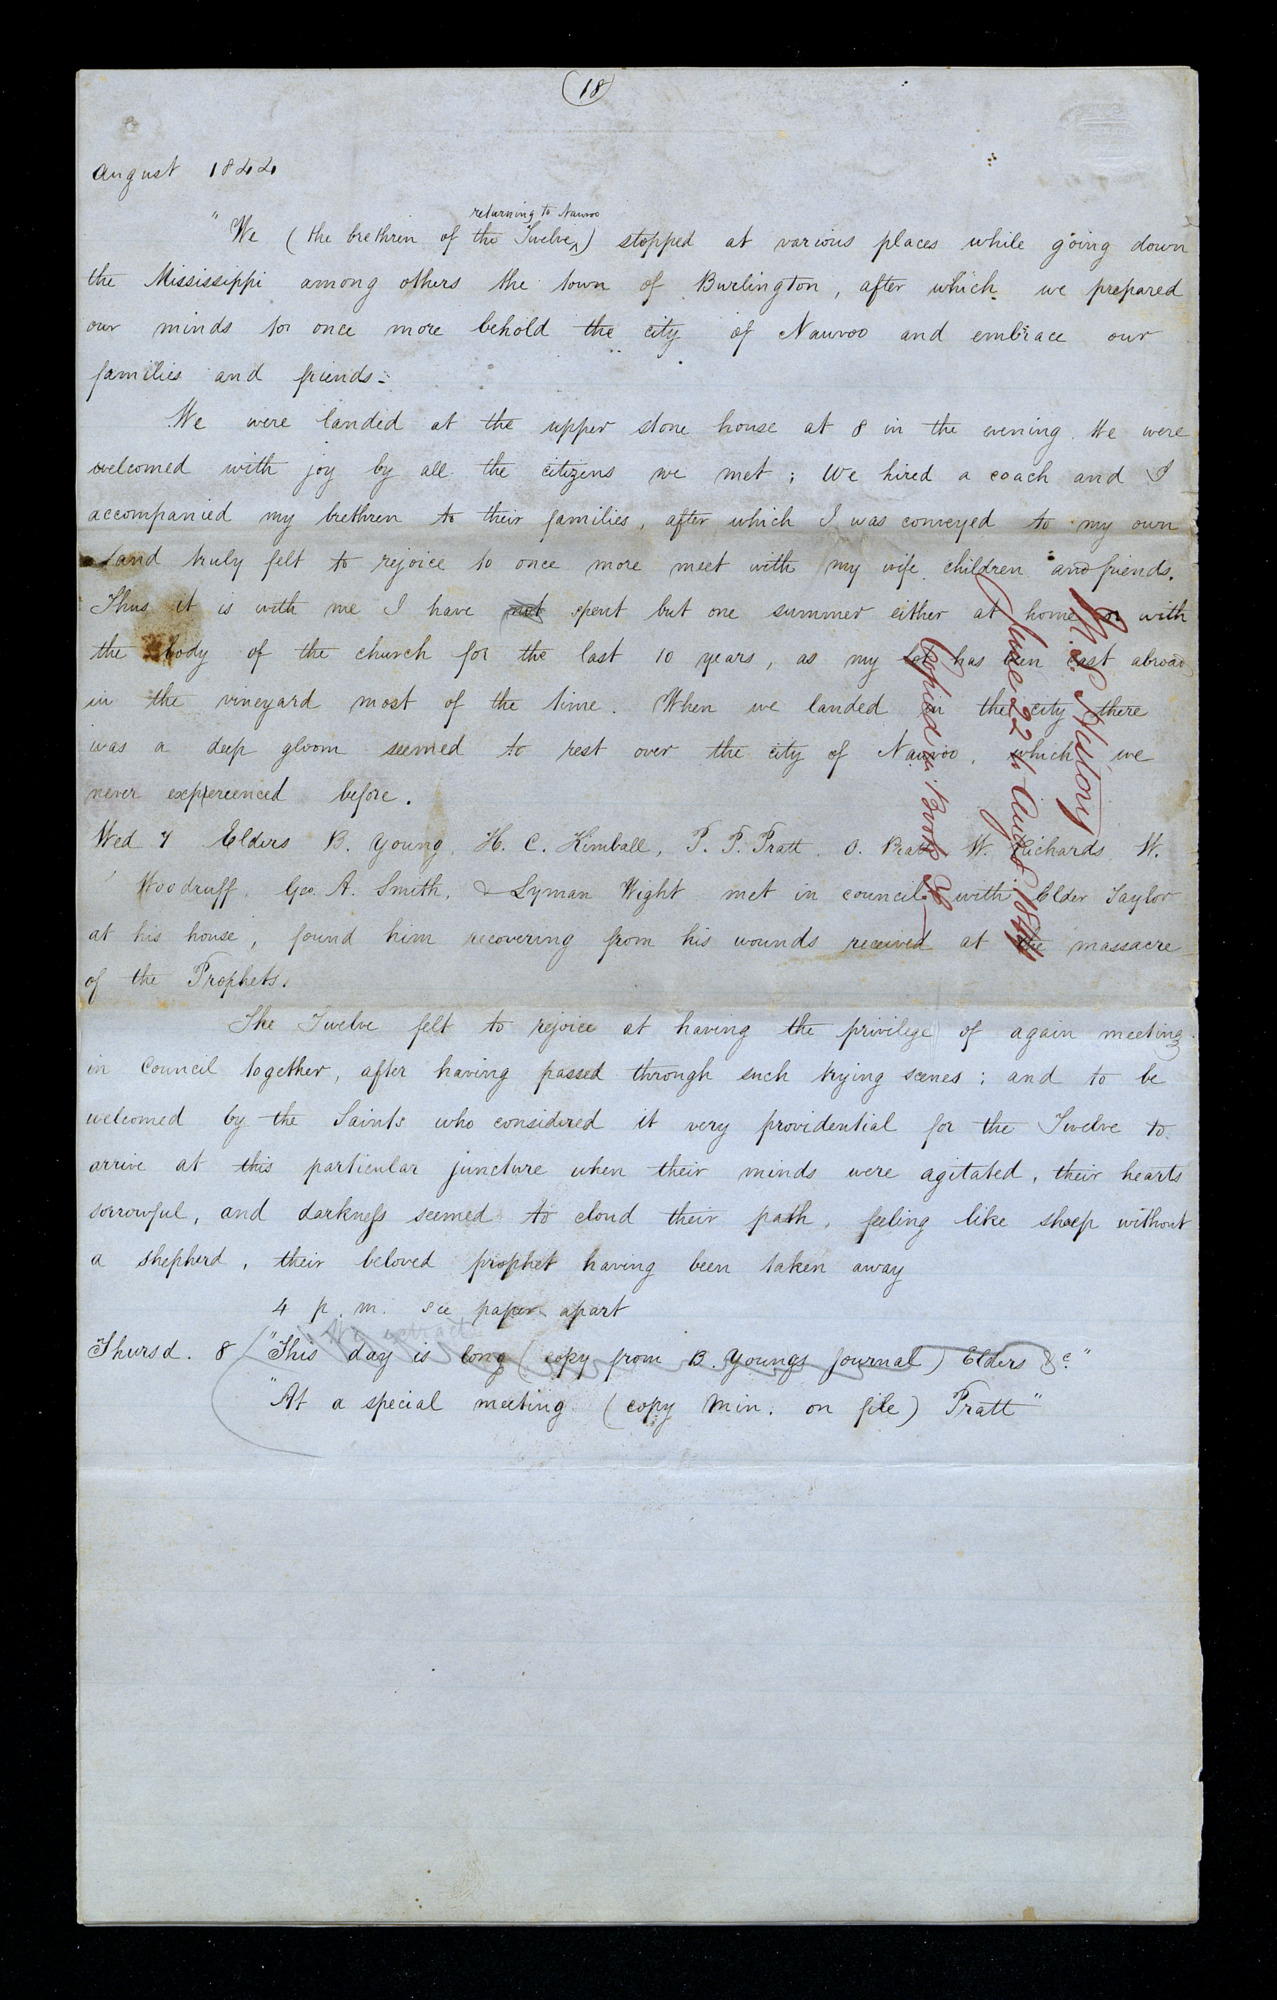 18
August 1844
returning to Nauvoo
"We (the brethren of the Twelve ^) stopped at various places while going down
the Mississippi among others the town of Burlington, after which we prepared
our minds to once more behold the city of Nauvoo and embrace our
families and friends.
We were landed at the upper stone house at 8 in the evening. We were
welcomed with joy by all the citizens we met; We hired a coach and I
accompanied my brethren to their families, after which I was conveyed to my own
& and truly felt to rejoice to once more meet with my wife children and friends.
Thus it is with me I have not spent but one summer either at home or with
the body of the church for the last 10 years, as my lot has been cast abroad
in the vineyard most of the time. When we landed in the city there
was a deep gloom seemed to rest over the city of Nauvoo, which we
never expereienced before.
Wed 7 Elders B. Young, H. C. Kimball, P. P. Pratt, O. Pratt W. Richards, W.
Woodruff, Geo. A. Smith, & Lyman Wight met in council with Elder Taylor
at his house, found him recovering from his wounds received at the massacre
of the Prophets.
The Twelve felt to rejoice at having the privilege of again meeting
in council together, after having passed through such trying scenes; and to be
welcomed by the Saints who considered it very providential for the Twelve to
arrive at this particular juncture when their minds were agitated, their hearts
sorrowful, and darkness seemed to cloud their path, feeling like sheep without
a shepherd, their beloved prophet having been taken away
4 p. m. see paper apart
Thursd. 8 "This day is long (copy from B. Youngs journal) Elders &c."
"At a special meeting (copy Min. on file) Pratt"
M.S. History
June 22 to Aug 8. 1844
Copied in Book